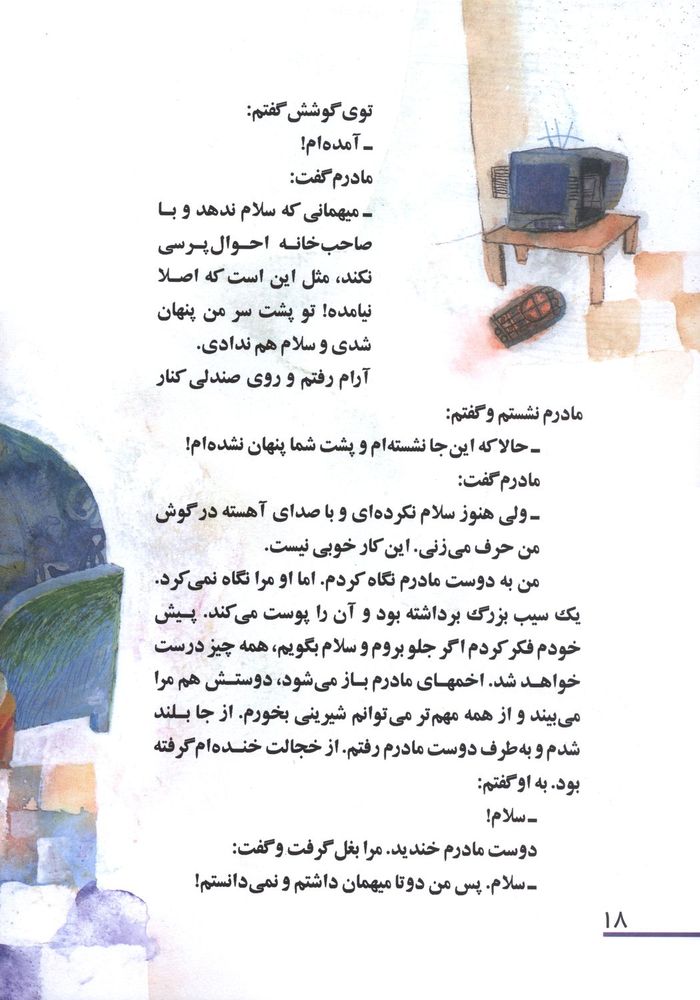 توی گوشش گفتم:
ـ آمده‌ام!
مادرم گفت:
ـ میهمانی که سلام ندهد و با
صاحب‌خانه احوال‌پرسی
نکند، مثل این است که اصلا
نیامده! تو پشت سر من پنهان
شدی و سلام هم ندادی.
آرام رفتم و روی صندلی کنار
مادرم نشستم و گفتم:
ـ حالا که این‌جا نشسته‌ام و پشت شما پنهان نشده‌ام!
مادرم گفت:
ـ ولی هنوز سلام نکرده‌ای و با صدای آهسته در گوش
من حرف می‌زنی. این کار خوبی نیست.
من به دوست مادرم نگاه کردم. اما او مرا نگاه نمی‌کرد.
یک سیب بزرگ برداشته بود و آن را پوست می‌کند. پیش
خودم فکر کردم اگر جلو بروم و سلام بگویم، همه چیز درست
خواهد شد. اخمهای مادرم باز می‌شود، دوستش هم مرا
می‌بیند و از همه مهم‌تر می‌توانم شیرینی بخورم. از جا بلند
شدم و به‌طرف دوست مادرم رفتم. از خجالت خنده‌ام گرفته
بود. به او گفتم:
ـ سلام!
دوست مادرم خندید. مرا بغل گرفت و گفت:
ـ سلام. پس من دو تا میهمان داشتم و نمی‌دانستم!
۱۸